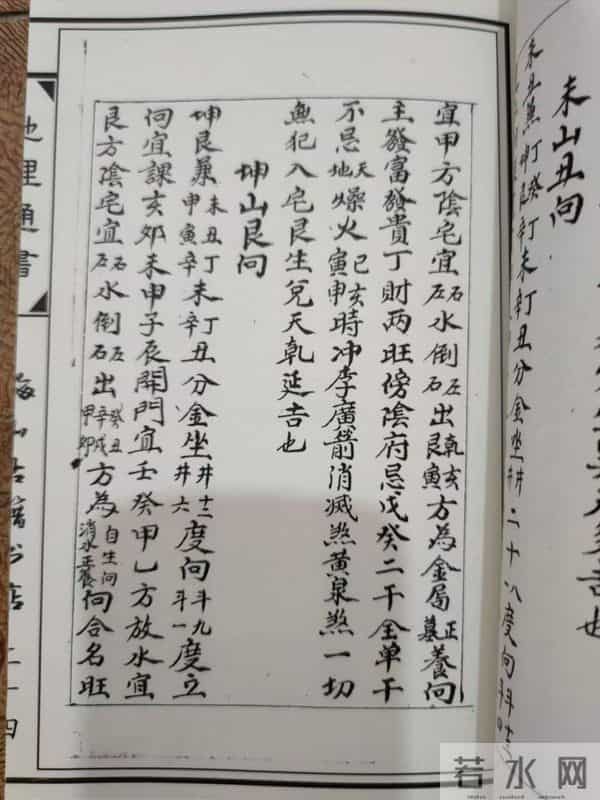 吉也
未山丑向
未丑兼丁癸丁未丁丑分金坐井二十八度向斗
宜甲方陰宅宜右左水倒左右出乾亥艮寅方為金局正墓養向
主發富發貴丁財两旺傍陰府忌戊癸二干全单干
不忌天地燥火巳亥寅申時冲李廣箭消滅煞黄泉煞一切
無犯入宅艮生兌天乾延吉也
坤山艮向
坤艮兼未丑申寅丁辛未丁辛丑分金坐井十三井六度向斗九斗一度立
向宜課亥卯未申子辰開門宜壬癸甲乙方放水宜
艮方陰宅宜右左水倒左右出癸丑辛戌甲卯方為自生向消水正養向合名旺
地理通書
古籍书店
二十四
若水网